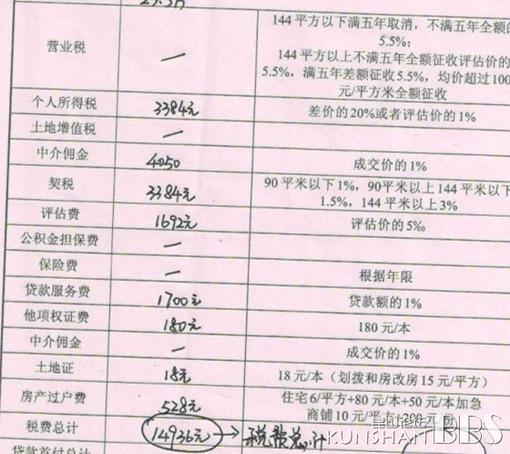 营业税
—
144平方以下满五年取消,不满五年全额
5.5%;
144平方以上不满五年全额征收评估价的
5.5%,满五年差额征收5.5%,均价超过100
元/平方米全额征收
个人所得税 3384元 差价的20%或者评估价的1%
土地增值税 —
中介佣金 4050 成交价的1%
契税 3384元 90平米以下1%,90平米以上144平米以下
1.5%,144平米以上3%
评估费 1692元 评估价的5‰
公积金担保费 —
保险费 — 根据年限
贷款服务费 1700元 贷款额的1%
他项权证费 180元 180元/本
中介佣金 — 成交价的1%
土地证 18元 18元/本(划拨和房改房15元/平方)
房产过户费 528元 住宅6/平方+80元/本+50元/本加急
商铺10元/平方+200元
税费总计 14936元 → 税费总计
贷款首付总计
KUNSHAN BBS